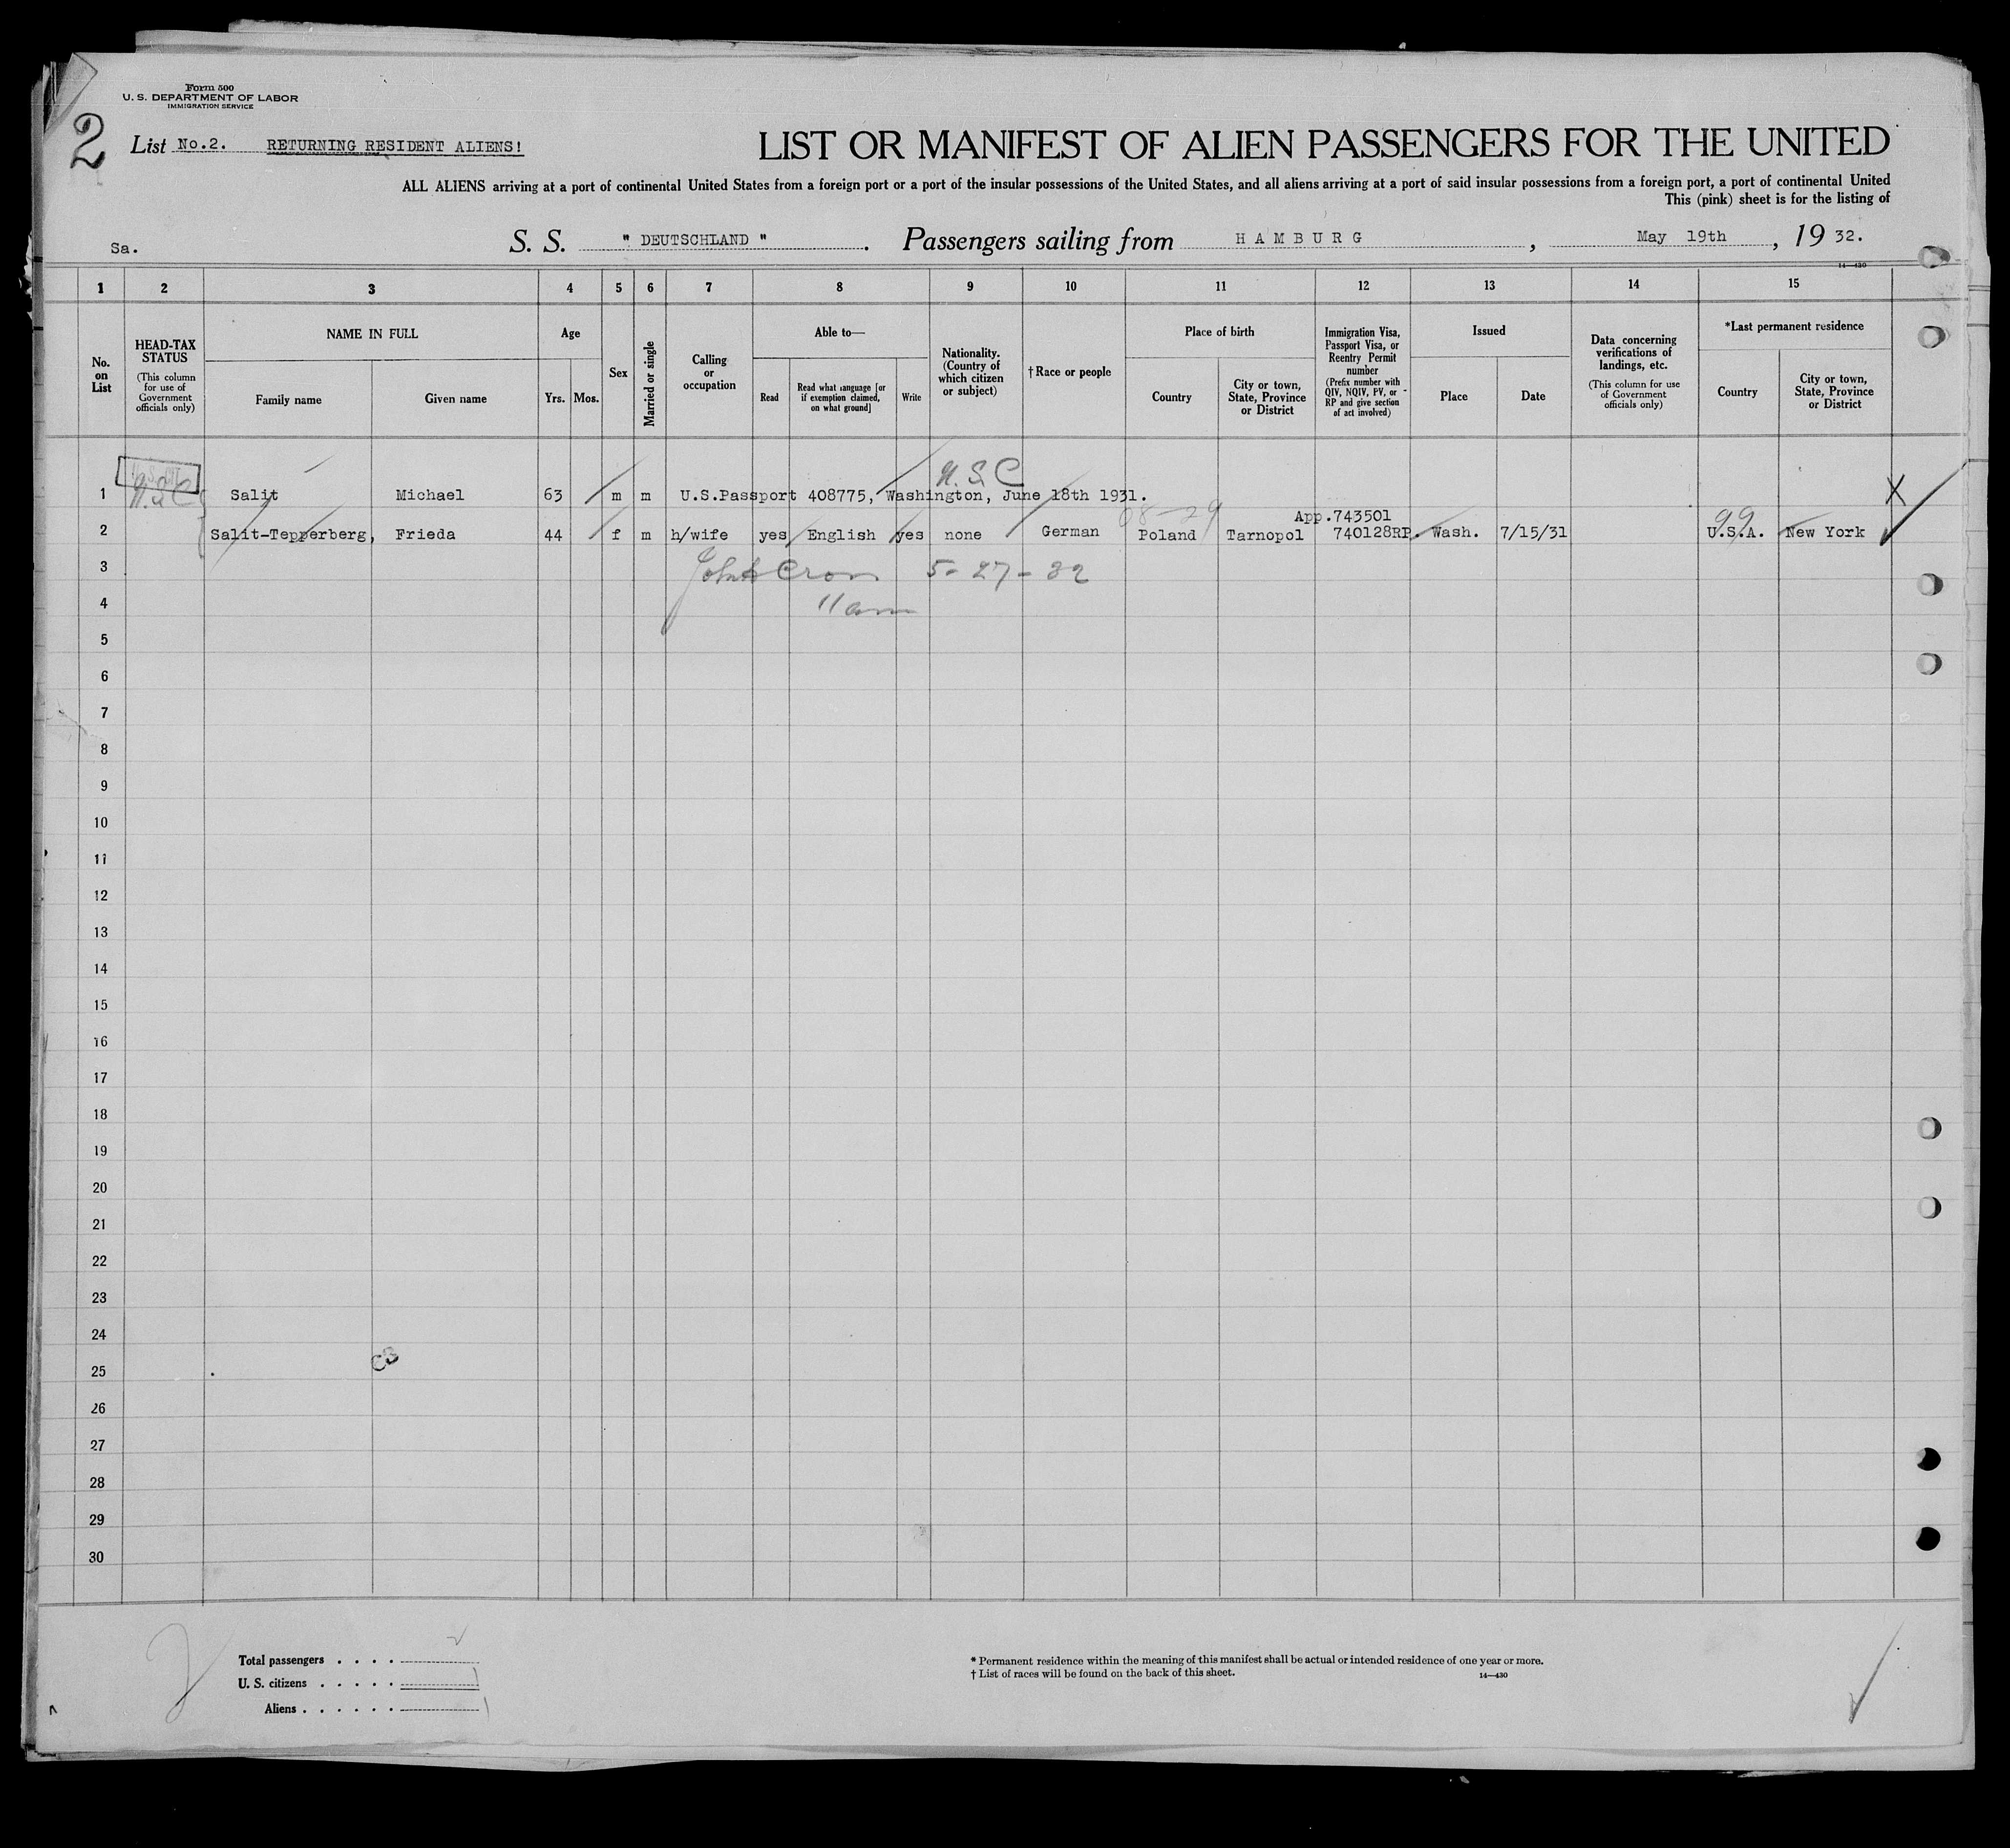 Form 500
U. S. DEPARTMENT OF LABOR
IMMIGRATION SERVICE
2
List No.2. RETURNING RESIDENT ALIENS!
LIST OR MANIFEST OF ALIEN PASSENGERS FOR THE UNITED
ALL ALIENS arriving at a port of continental United States from a foreign port or a port of the insular possessions of the United States, and all aliens arriving at a port of said insular possessions from a foreign port, a port of continental United
This (pink) sheet is for the listing of
Sa.
S. S. " DEUTSCHLAND " . Passengers sailing from HAMBURG , May 19th , 19 32.
14—430
1 2 3 4 5 6 7 8 9 10 11 12 13 14 15
No. on List
HEAD-TAX STATUS
(This column for use of Government officials only)
NAME IN FULL
Family name
Given name
Age
Yrs.
Mos.
Sex
Married or single
Calling or occupation
Able to—
Read
Read what language [or if exemption claimed, on what ground]
Write
Nationality. (Country of which citizen or subject)
†Race or people
Place of birth
Country
City or town, State, Province or District
Immigration Visa, Passport Visa, or Reentry Permit number
(Prefix number with QIV, NQIV, PV, or RP and give section of act involved)
Issued
Place
Date
Data concerning verifications of landings, etc.
(This column for use of Government officials only)
*Last permanent residence
Country
City or town, State, Province or District
U.S.C
1 Salit Michael 63 m m U.S.Passport 408775, Washington, June 18th 1931. X
08-29
App.743501
99
2 Salit-Tepperberg, Frieda 44 f m h/wife yes English yes none German Poland Tarnopol 740128RP. Wash. 7/15/31 U.S.A. New York
3 5-27-32
4 11am
5
6
7
8
9
10
11
12
13
14
15
16
17
18
19
20
21
22
23
24
25
26
27
28
29
30
Total passengers . . . .
U. S. citizens . . . . .
Aliens . . . . . .
* Permanent residence within the meaning of this manifest shall be actual or intended residence of one year or more.
† List of races will be found on the back of this sheet.
14—430